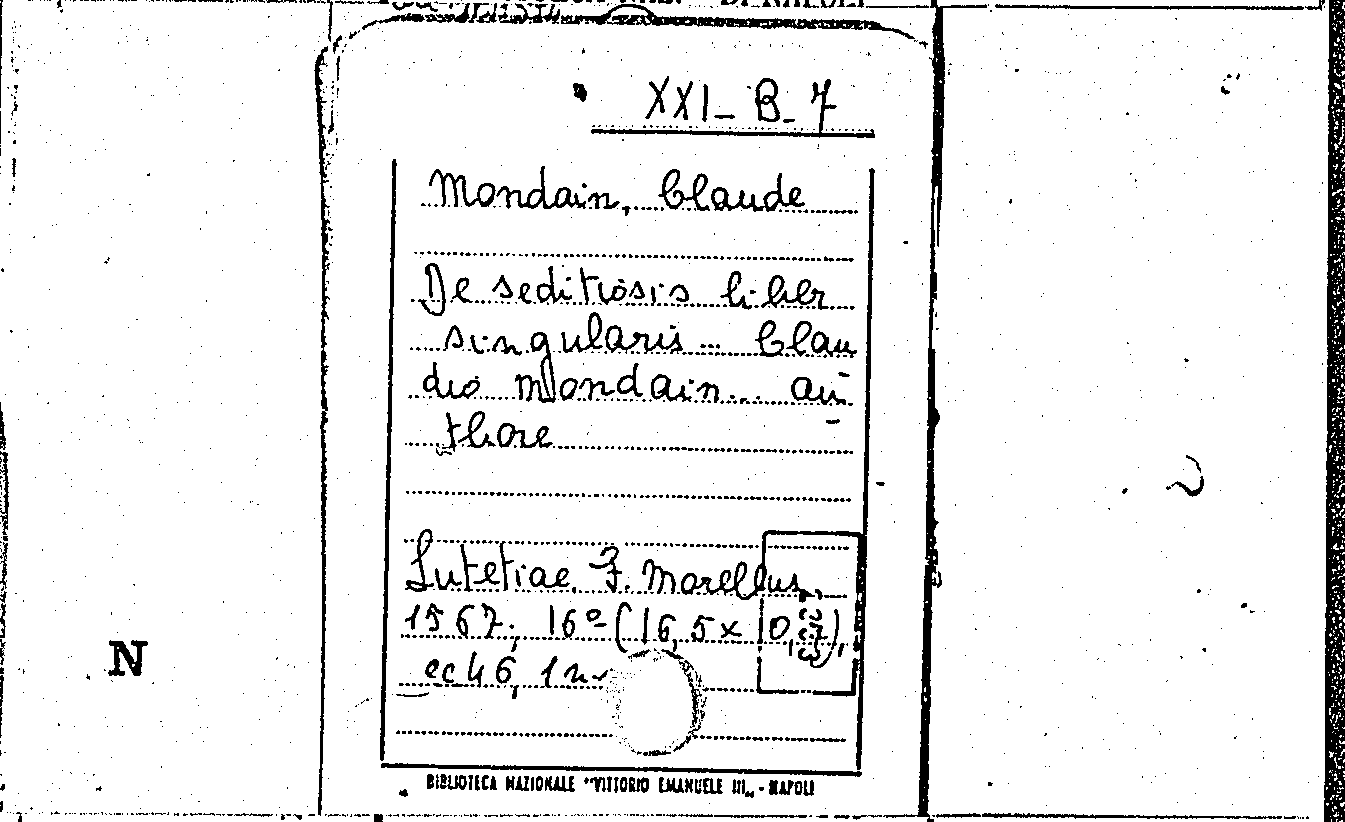 DI NAPOLI
XXI_B_7
Mondain, Claude
De seditiosis liber
singularis... Clau
dio Mondain... au
thore
Lutetiae, F. Morellus,
1567; 16º (16,5x10,3),
cc 46, 1 n
N
BIBLIOTECA NAZIONALE "VITTORIO EMANUELE III„ - NAPOLI